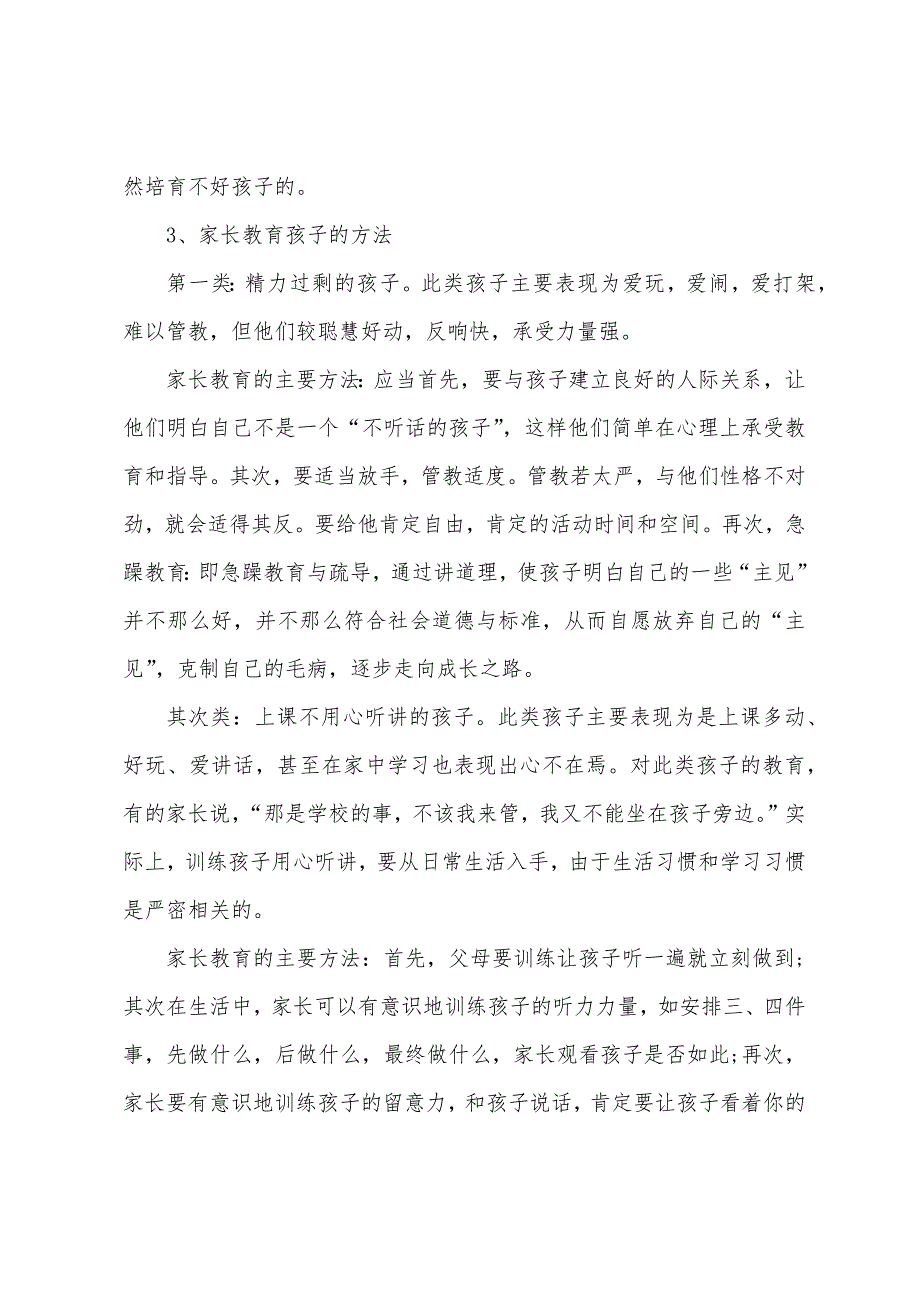 然培育不好孩子的。
3、家长教育孩子的方法
第一类：精力过剩的孩子。此类孩子主要表现为爱玩，爱闹，爱打架，
难以管教，但他们较聪慧好动，反响快，承受力量强。
家长教育的主要方法：应当首先，要与孩子建立良好的人际关系，让
他们明白自己不是一个“不听话的孩子”，这样他们简单在心理上承受教
育和指导。其次，要适当放手，管教适度。管教若太严，与他们性格不对
劲，就会适得其反。要给他肯定自由，肯定的活动时间和空间。再次，急
躁教育：即急躁教育与疏导，通过讲道理，使孩子明白自己的一些“主见”
并不那么好，并不那么符合社会道德与标准，从而自愿放弃自己的“主
见”，克制自己的毛病，逐步走向成长之路。
其次类：上课不用心听讲的孩子。此类孩子主要表现为是上课多动、
好玩、爱讲话，甚至在家中学习也表现出心不在焉。对此类孩子的教育，
有的家长说，“那是学校的事，不该我来管，我又不能坐在孩子旁边。”实
际上，训练孩子用心听讲，要从日常生活入手，由于生活习惯和学习习惯
是严密相关的。
家长教育的主要方法：首先，父母要训练让孩子听一遍就立刻做到;
其次在生活中，家长可以有意识地训练孩子的听力力量，如安排三、四件
事，先做什么，后做什么，最终做什么，家长观看孩子是否如此;再次，
家长要有意识地训练孩子的留意力，和孩子说话，肯定要让孩子看着你的